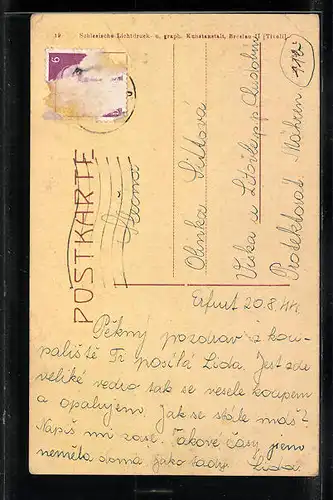 19 Schlesische Lichtdruck- u. graph. Kunstanstalt, Breslau II (Tivoli)
6
POSTKARTE
Slečna
Olinka
Víska u p. Chudobín
Protektorat Mähren
Erfurt 20.8.44.
Pěkný pozdrav z kou-
paliště Ti posílá Lída. Jest zde
veliké vedro tak se vesele koupem
a opalujem. Jak se stále máš?
Napiš mi zase. Takové časy jsem
neměla doma jako tady. Lída.